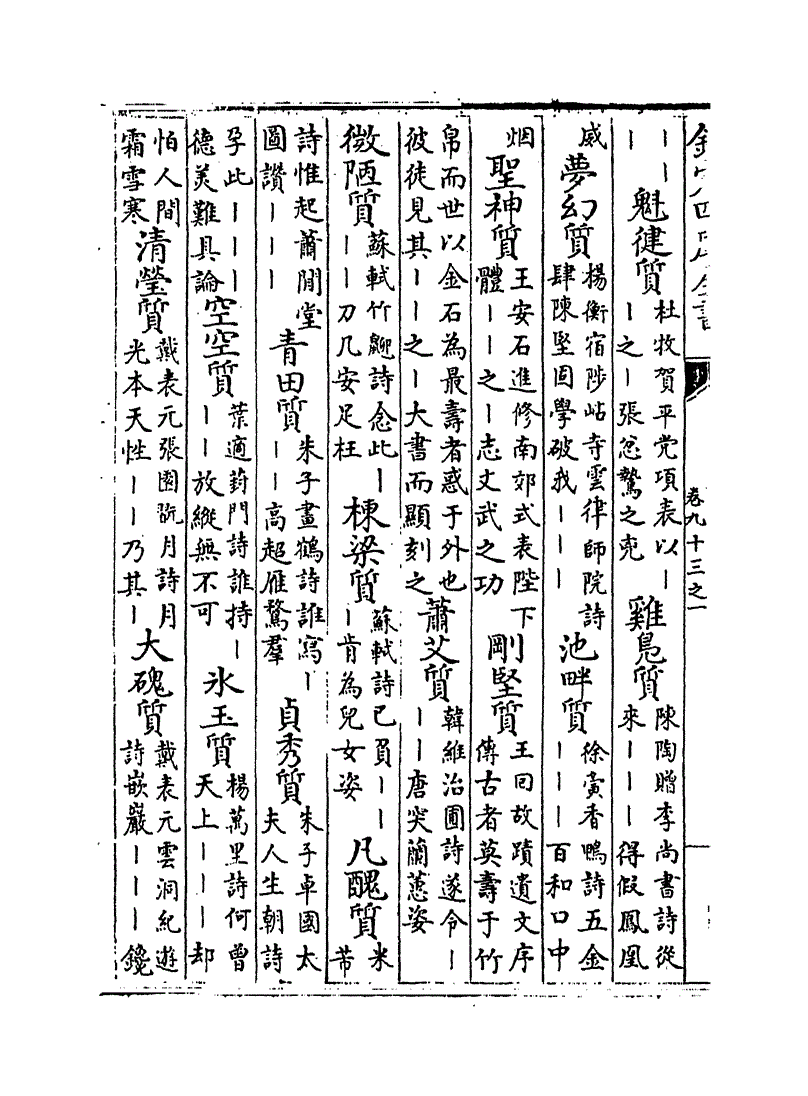 欽定四庫全書
卷九十三之一
——
—
魁健質
杜牧賀平党項表以—
—之—張忿驁之兇
雞鳧質
陳陶贈李尚書詩從
來———得假鳳凰
威
夢幻質
楊衡宿陟岵寺雲律師院詩
肆陳堅固學破我———
池畔質
徐夤香鴨詩五金
———百和口中
烟
聖神質
王安石進修南郊式表陛下
體——之—志文武之功
剛堅質
王回故蹟遺文序
傳古者莫壽于竹
帛而世以金石為最壽者惑于外也
彼徒見其——之—大書而顯刻之
蕭艾質
韓維治圃詩遂令—
——唐突蘭蕙姿
微陋質
蘇軾竹䶉詩念此—
——刀几安足枉
棟梁質
蘇軾詩已負——
—肯為兒女姿
凡醜質
米
芾
詩惟起蕭閒堂
圖讚———
青田質
朱子畫鶴詩誰寫—
——高超雁鶩羣
貞秀質
朱子卓國太
夫人生朝詩
孕此———
德美難具論
空空質
葉適葑門詩誰持—
——放縱無不可
氷玉質
楊萬里詩何曾
天上———却
怕人間
霜雪寒
清瑩質
戴表元張園翫月詩月
光本天性——乃其—
大磈質
戴表元雲洞紀遊
詩嵌巖———鑱